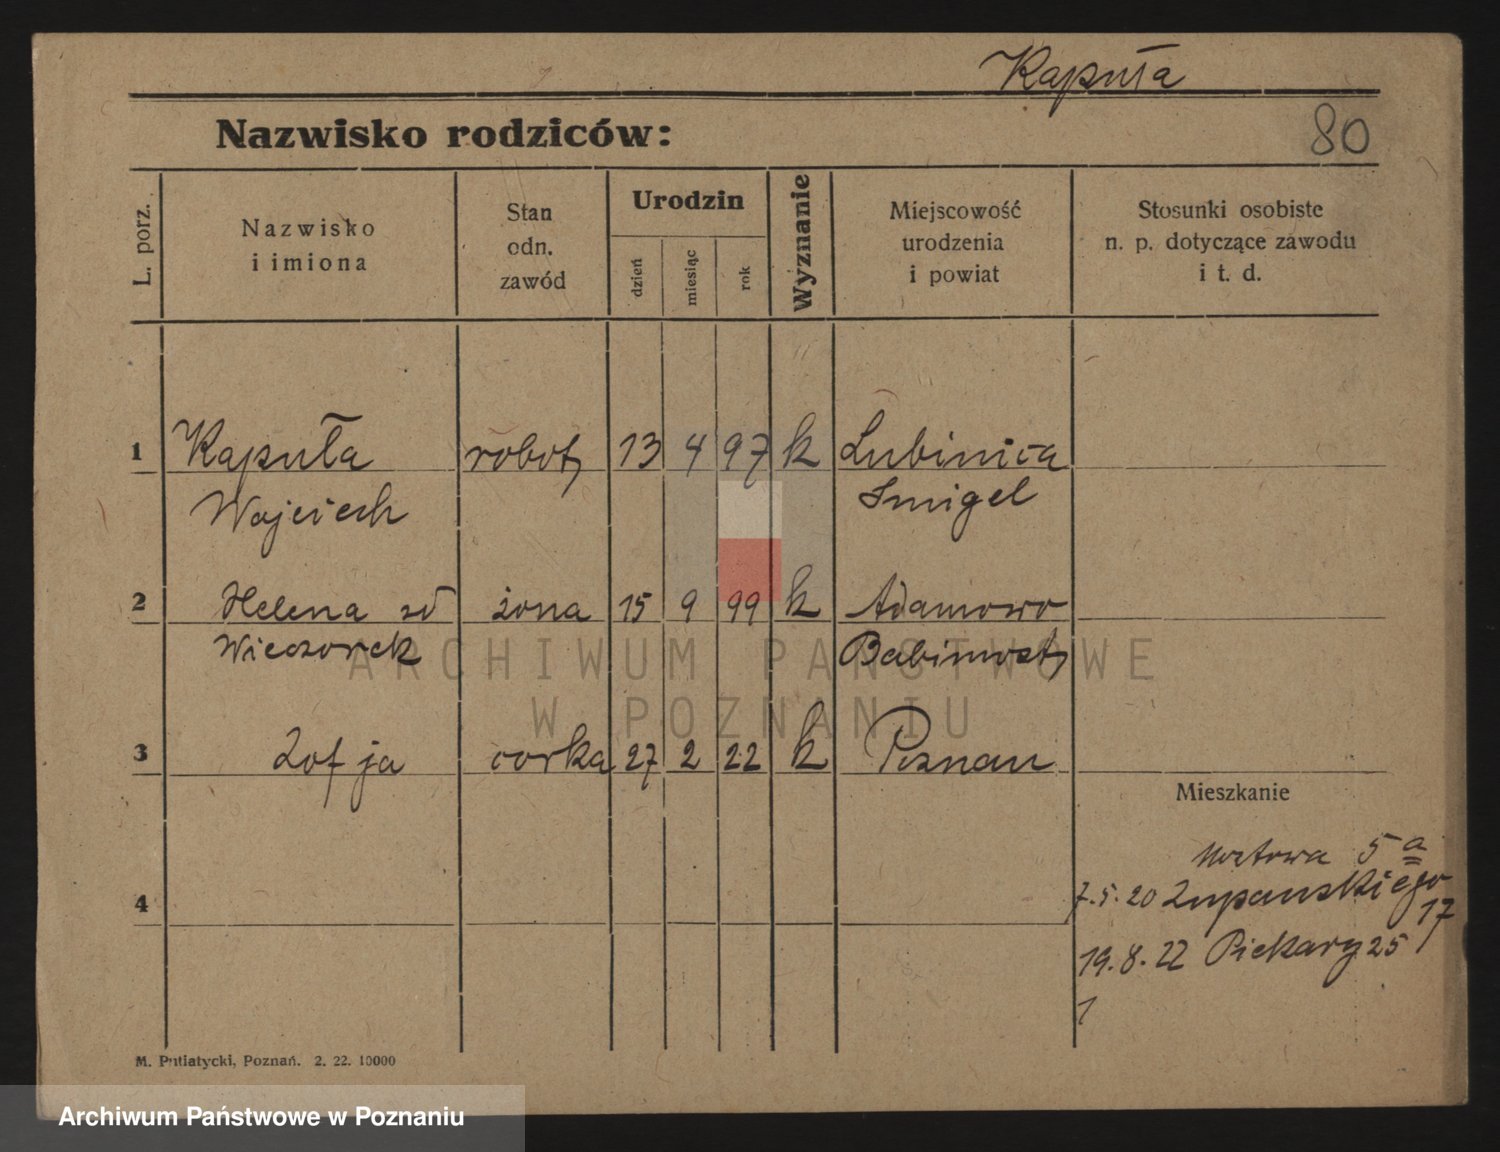 Kapuła
80
Nazwisko rodziców:
L. porz.
Nazwisko
i imiona
Stan
odn.
zawód
Urodzin
dzień
miesiąc
rok
Wyznanie
Miejscowość
urodzenia
i powiat
Stosunki osobiste
n. p. dotyczące zawodu
i t. d.
1 Kapuła robot 13 4 97 k Lubinica
Wojciech Smigel
2 Helena zd żona 15 9 99 k Adamowo
Wieczorek Babimost
ARCHIWUM PAŃSTWOWE
W POZNANIU
3 Zofja corka 27 2 22 k Poznan
Mieszkanie
5 a
7.5.20 Zupanskiego
17
4
19.8.22 Piekary 25
1
M. Putiatycki, Poznań. 2. 22. 10000
Archiwum Państwowe w Poznaniu